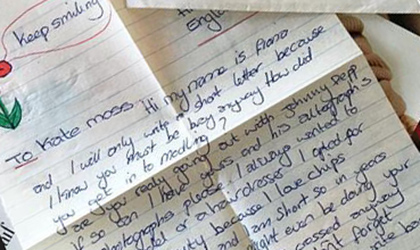 Keep smiling
Engl
To Kate moss Hi my name is Fiona
and I will only write a short letter because
I know you must be busy anyway How did
you get in to modling?
are you really going out with Johnny Depp
if so can I have yours and his autographs
photographs please. I always wanted to
or a hairdresser I opted for
because I love chips
and am short so in years
might even be doing your
anyway
forget
be